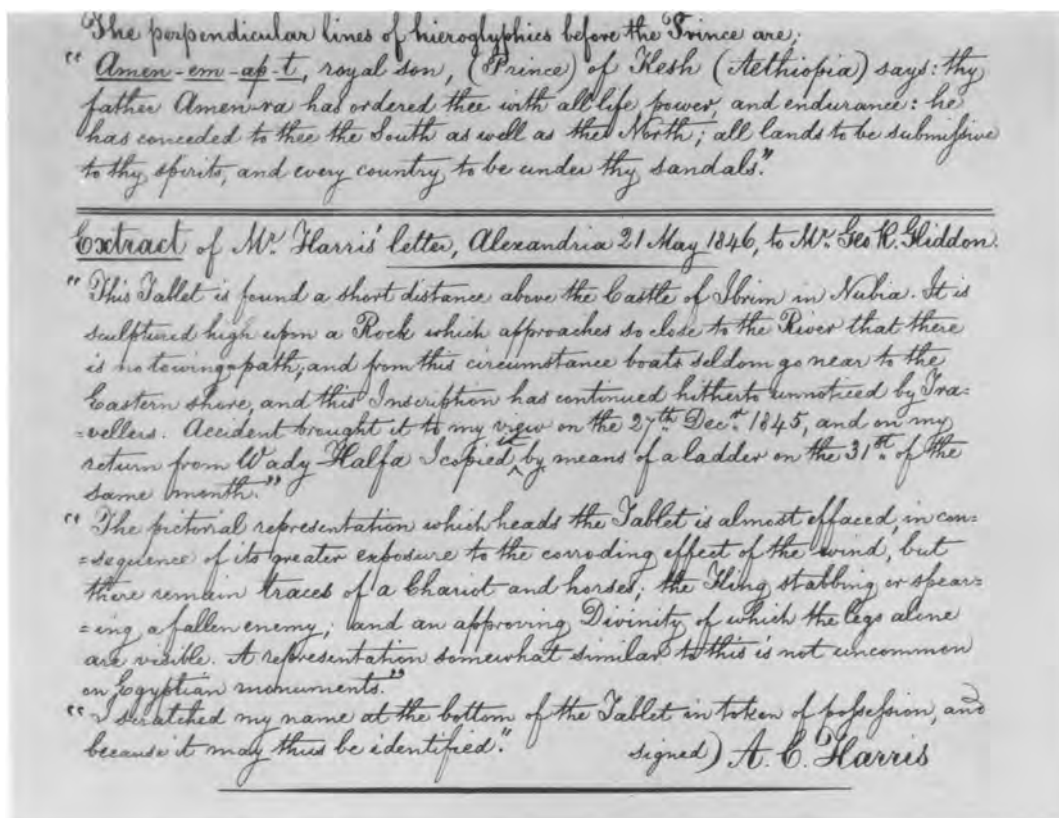 The perpendicular lines of hieroglyphics before the Prince are;
"Amen-em-ap-t, royal son, (Prince) of Kesh (Aethiopia) says: thy
father Amen-ra has ordered thee with all life, power, and endurance: he
has conceded to thee the South as well as the North; all lands to be submissive
to thy spirits, and every country to be under thy sandals."
Extract of Mr. Harris' letter, Alexandria 21 May 1846, to Mr. Geo R. Gliddon.
"This Tablet is found a short distance above the Castle of Ibrim in Nubia. It is
sculptured high upon a Rock which approaches so close to the River that there
is no towing-path; and from this circumstance boats seldom go near to the
Eastern shore, and this Inscription has continued hitherto unnoticed by Tra=
=vellers. Accident brought it to my view on the 27th. Decr. 1845, and on my
return from Wady-Halfa I copied it by means of a ladder on the 31st. of the
same month."
"The pictorial representation which heads the Tablet is almost effaced, in con=
=sequence of its greater exposure to the corroding effect of the wind, but
there remain traces of a Chariot and horses; the King stabbing or spear=
=ing a fallen enemy; and an approving Divinity of which the legs alone
are visible. A representation somewhat similar to this is not uncommon
on Egyptian monuments."
"I scratched my name at the bottom of the Tablet in token of possession, and
because it may thus be identified." signed) A. C. Harris